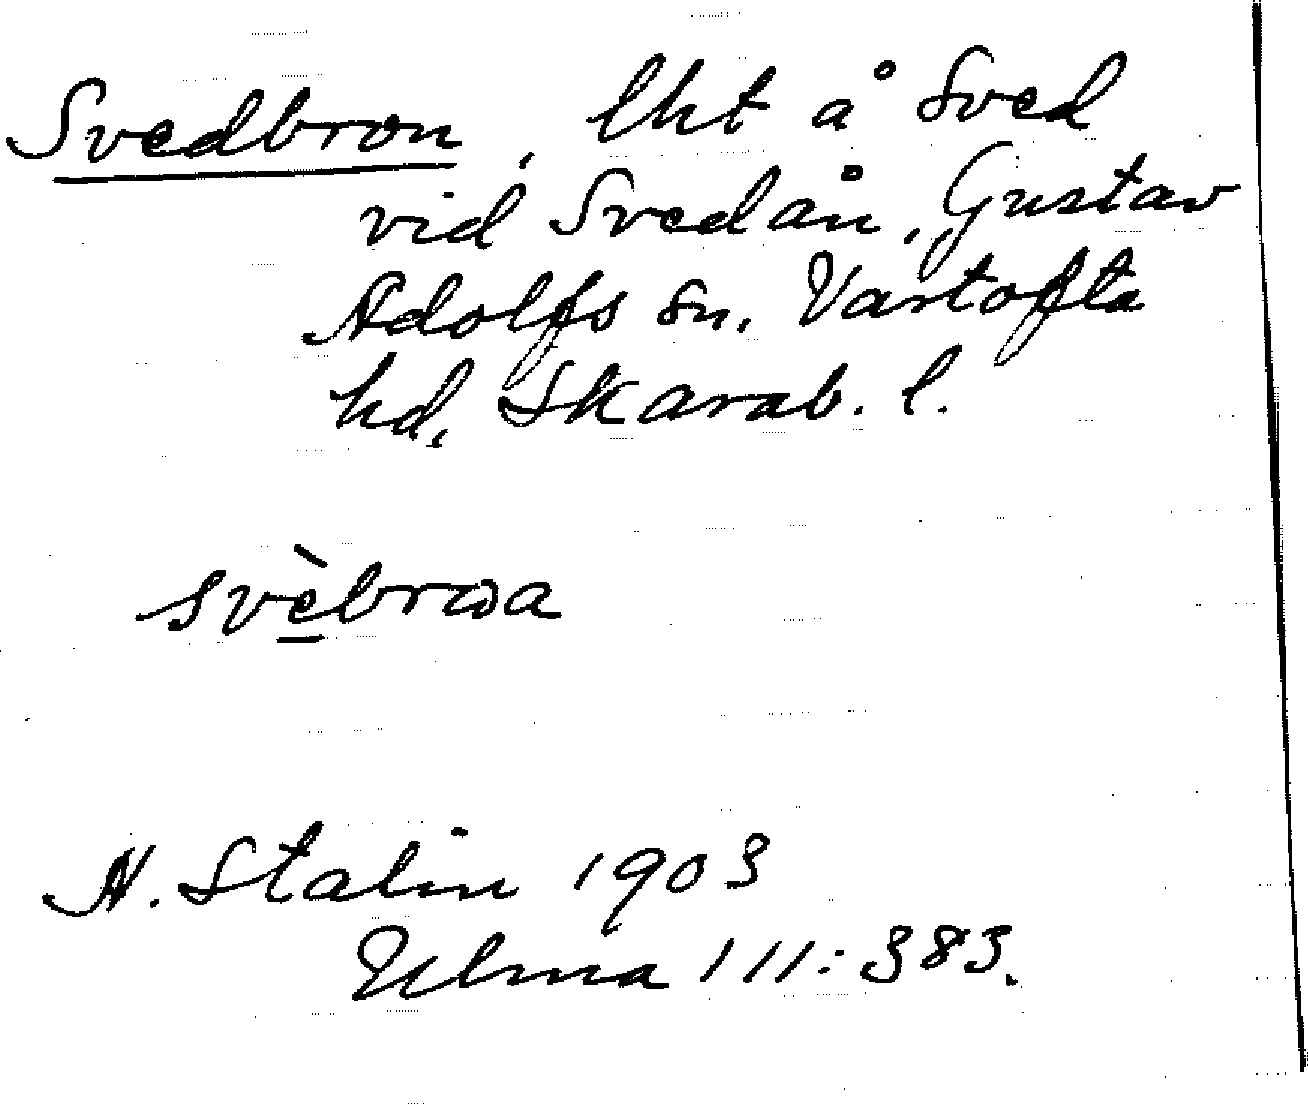 Svedbron, lht å Sved
vid Svedån, Gustav
Adolfs sn. Vartofta
hd, Skarab. l.
svèbrωa
N. Stalin 1903
Ulma 111:383.